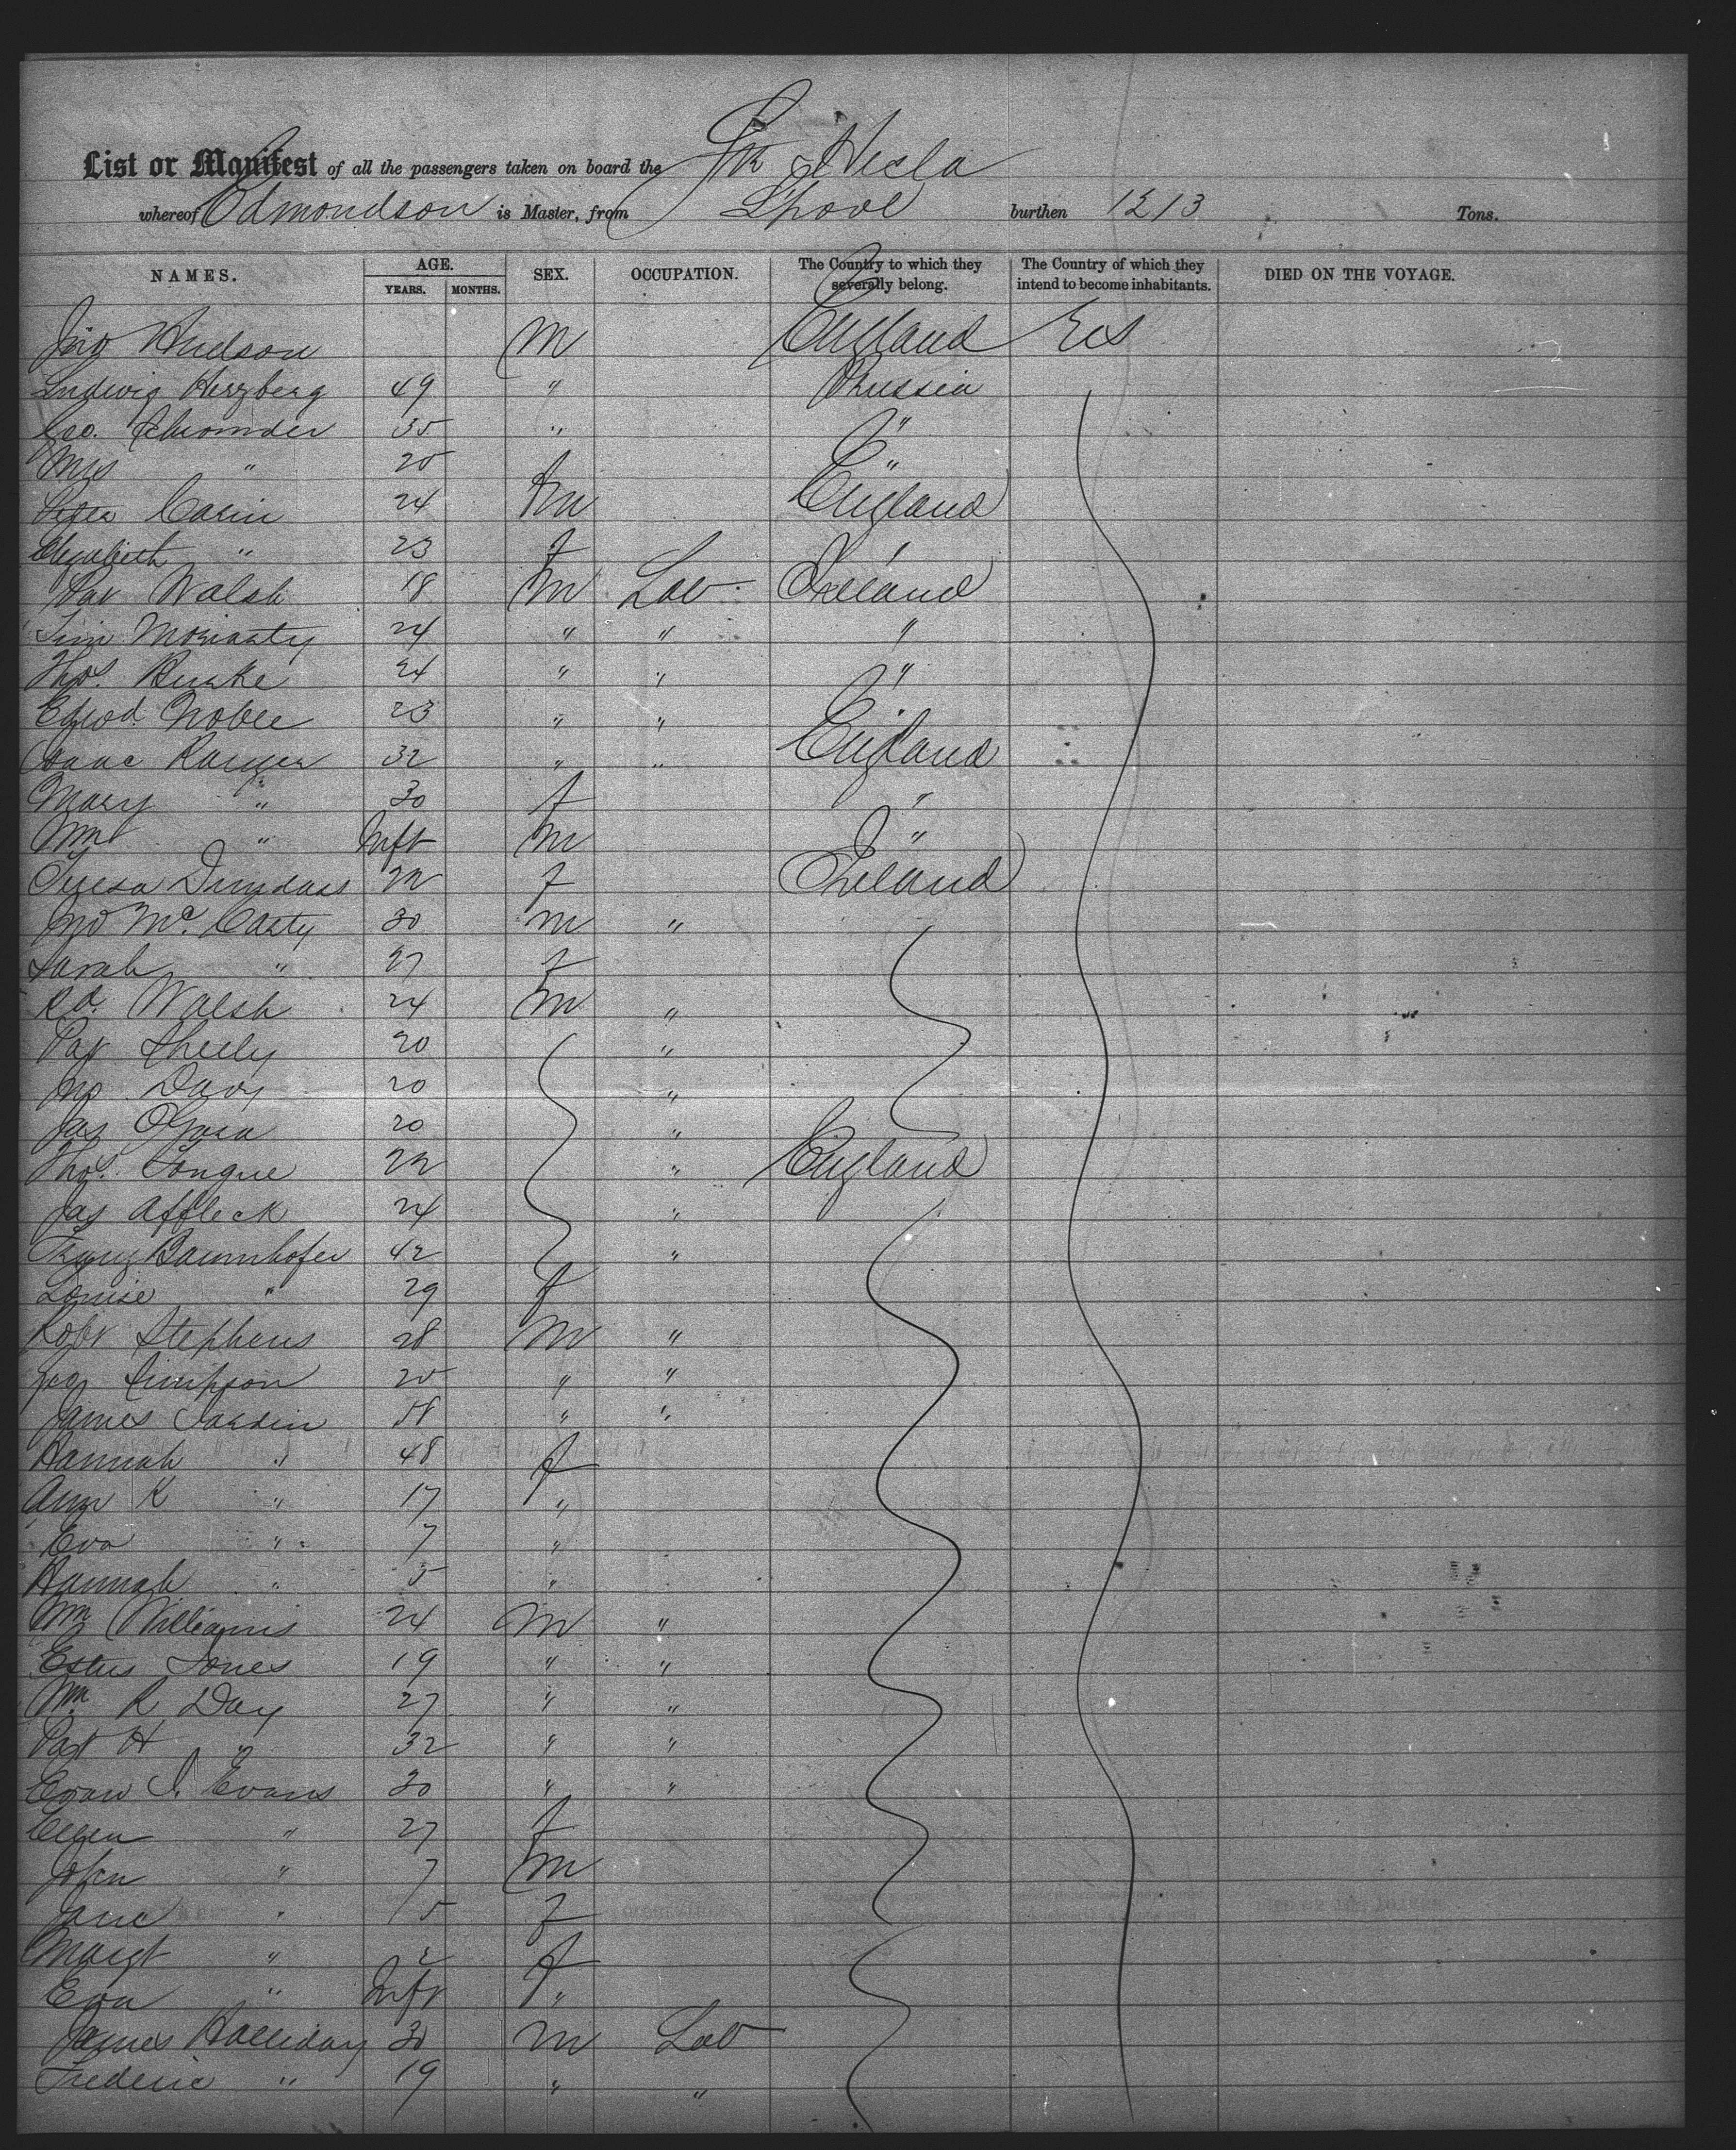 List or Manifest of all the passengers taken on board the Str Hecla
whereof Edmondson is Master, from L'pool burthen 1213 Tons.
NAMES. AGE. YEARS. MONTHS. SEX. OCCUPATION. The Country to which they severally belong. The Country of which they intend to become inhabitants. DIED ON THE VOYAGE.
Jno Hudson M England
Ludwig Herzberg 49 " Prussia
Geo. 35 " "
Mrs " 25 "
Carin 24 m England
Elizabeth " 23 f "
Pat Walsh 18 M Lab Ireland
Tim Moriarty 24 " " "
Thos. Burke 24 " " "
Edwd. Noble 23 " " "
Isaac Ranger 32 " " England
Mary " 30 f "
Wm " Inft m "
Teresa Dundass 22 f Ireland
Jno Mc. Carty 30 m "
Sarah " 27 f
Rd. Walsh 24 m "
Pat Sheely 20 "
Jno Davy 20 "
Jas 20 "
Thos. Tongue 22 " England
Jas Affleck 24 "
Franz Baumhofer 42 "
Louise " 29 f
Robt Stephens 28 M "
Jas Simpson 25 " "
James Jardin 58 " "
Hannah " 48 f
Ann K " 17 "
Eva " 7 "
Hannah " 5 "
Wm Williams 24 M "
Jones 19 " "
Wm. R Day 27 " "
H " 32 " "
Evan J. Evans 30 " "
Ellen " 27 f
John " 7 m
Jane " 5 f
Margt " 2 f
Eva " Inft "
James Halliday 30 m Lab
Frederic " 19 " "